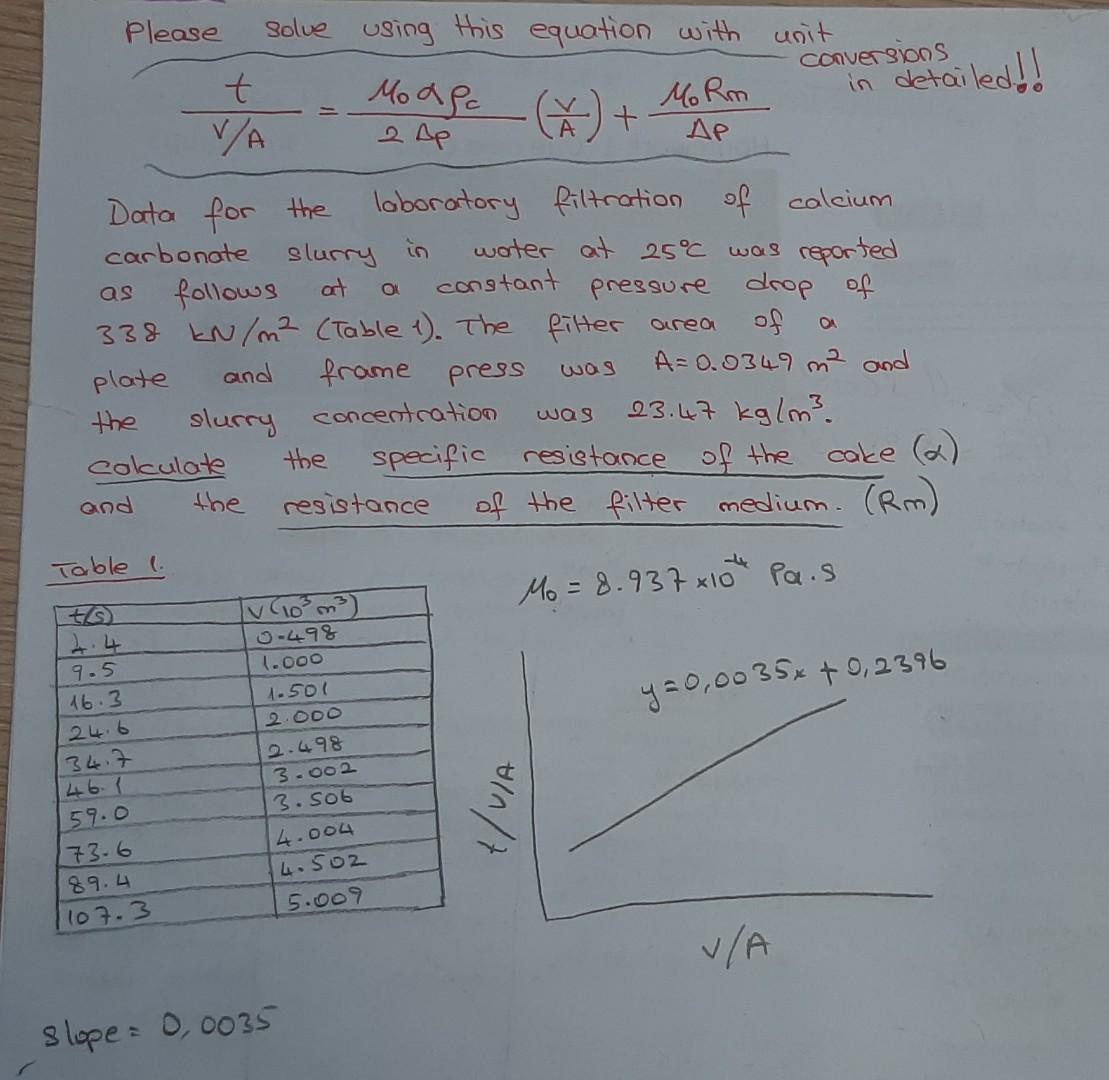 Please solve using this equation with unit
conversions
in detailed!!
t / V/A = μ₀ α ρc / 2 Δp (V/A) + μ₀ Rm / Δp
Data for the laboratory filtration of calcium
carbonate slurry in water at 25°C was reported
as follows at a constant pressure drop of
338 kN/m² (Table 1). The filter area of a
plate and frame press was A=0.0349 m² and
the slurry concentration was 23.47 kg/m³.
calculate the specific resistance of the cake (α)
and the resistance of the filter medium. (Rm)
Table 1.
t(s) V(10³ m³)
4.4 0.498
9.5 1.000
16.3 1.501
24.6 2.000
34.7 2.498
46.1 3.002
59.0 3.506
73.6 4.004
89.4 4.502
107.3 5.009
μ₀ = 8.937 x10⁻⁴ Pa.s
y=0,0035x + 0,2396
t/V/A
V/A
slope = 0,0035